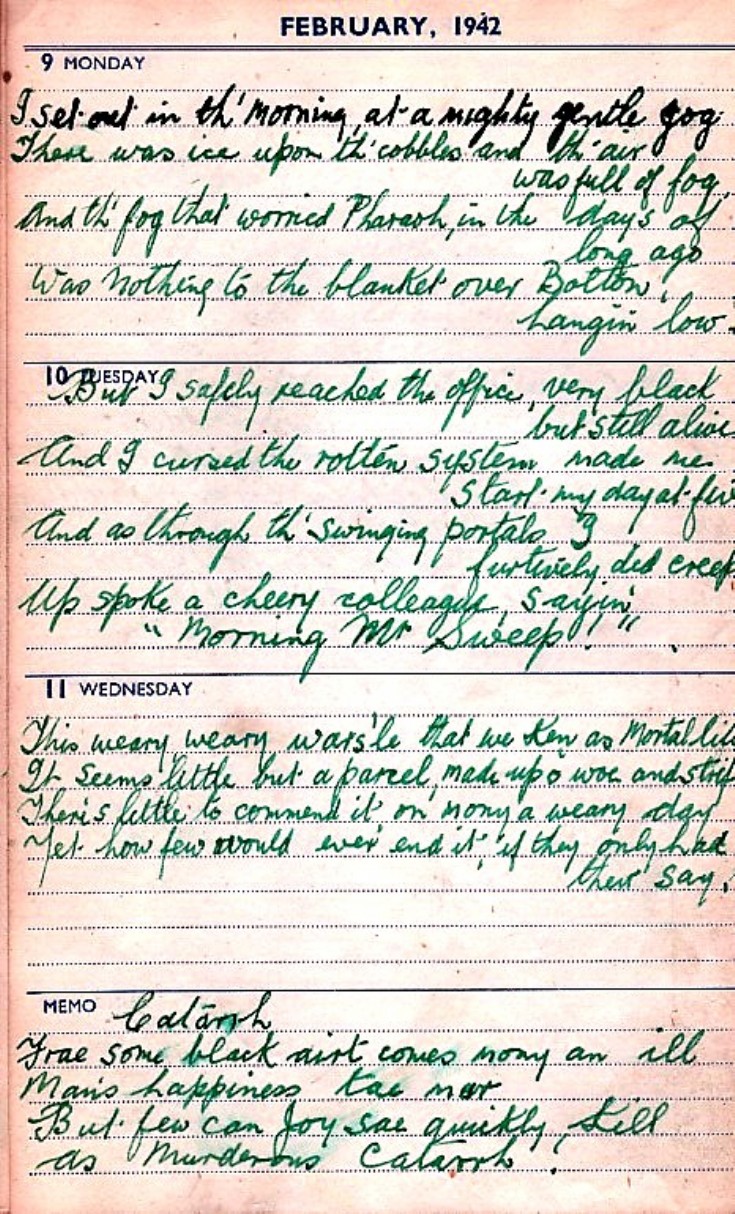 FEBRUARY, 1942
9 MONDAY
I set out in th' morning, at a mighty gentle jog
There was ice upon th' cobbles and th' air
was full of fog,
And th' fog that worried Pharaoh, in the days of
long ago
Was nothing to the blanket over Bolton,
hangin' low.
10 TUESDAY
But I safely reached the office, very black
but still alive
And I cursed the rotten system made me
start my day at five
And as through th' swinging portals I
furtively did creep
Up spoke a cheery colleague, sayin'
"Morning Mr Sweep!"
11 WEDNESDAY
This weary weary wars'le that we ken as Mortal life
It seems little but a parcel, made up o' woe and strife
There's little to commend it on mony a weary day
Yet how few would ever end it, if they only had
their say.
MEMO
Catarrh
Frae some black airt comes mony an ill
Man's happiness tae mar
But few can joy sae quickly kill
as Murderous Catarrh!